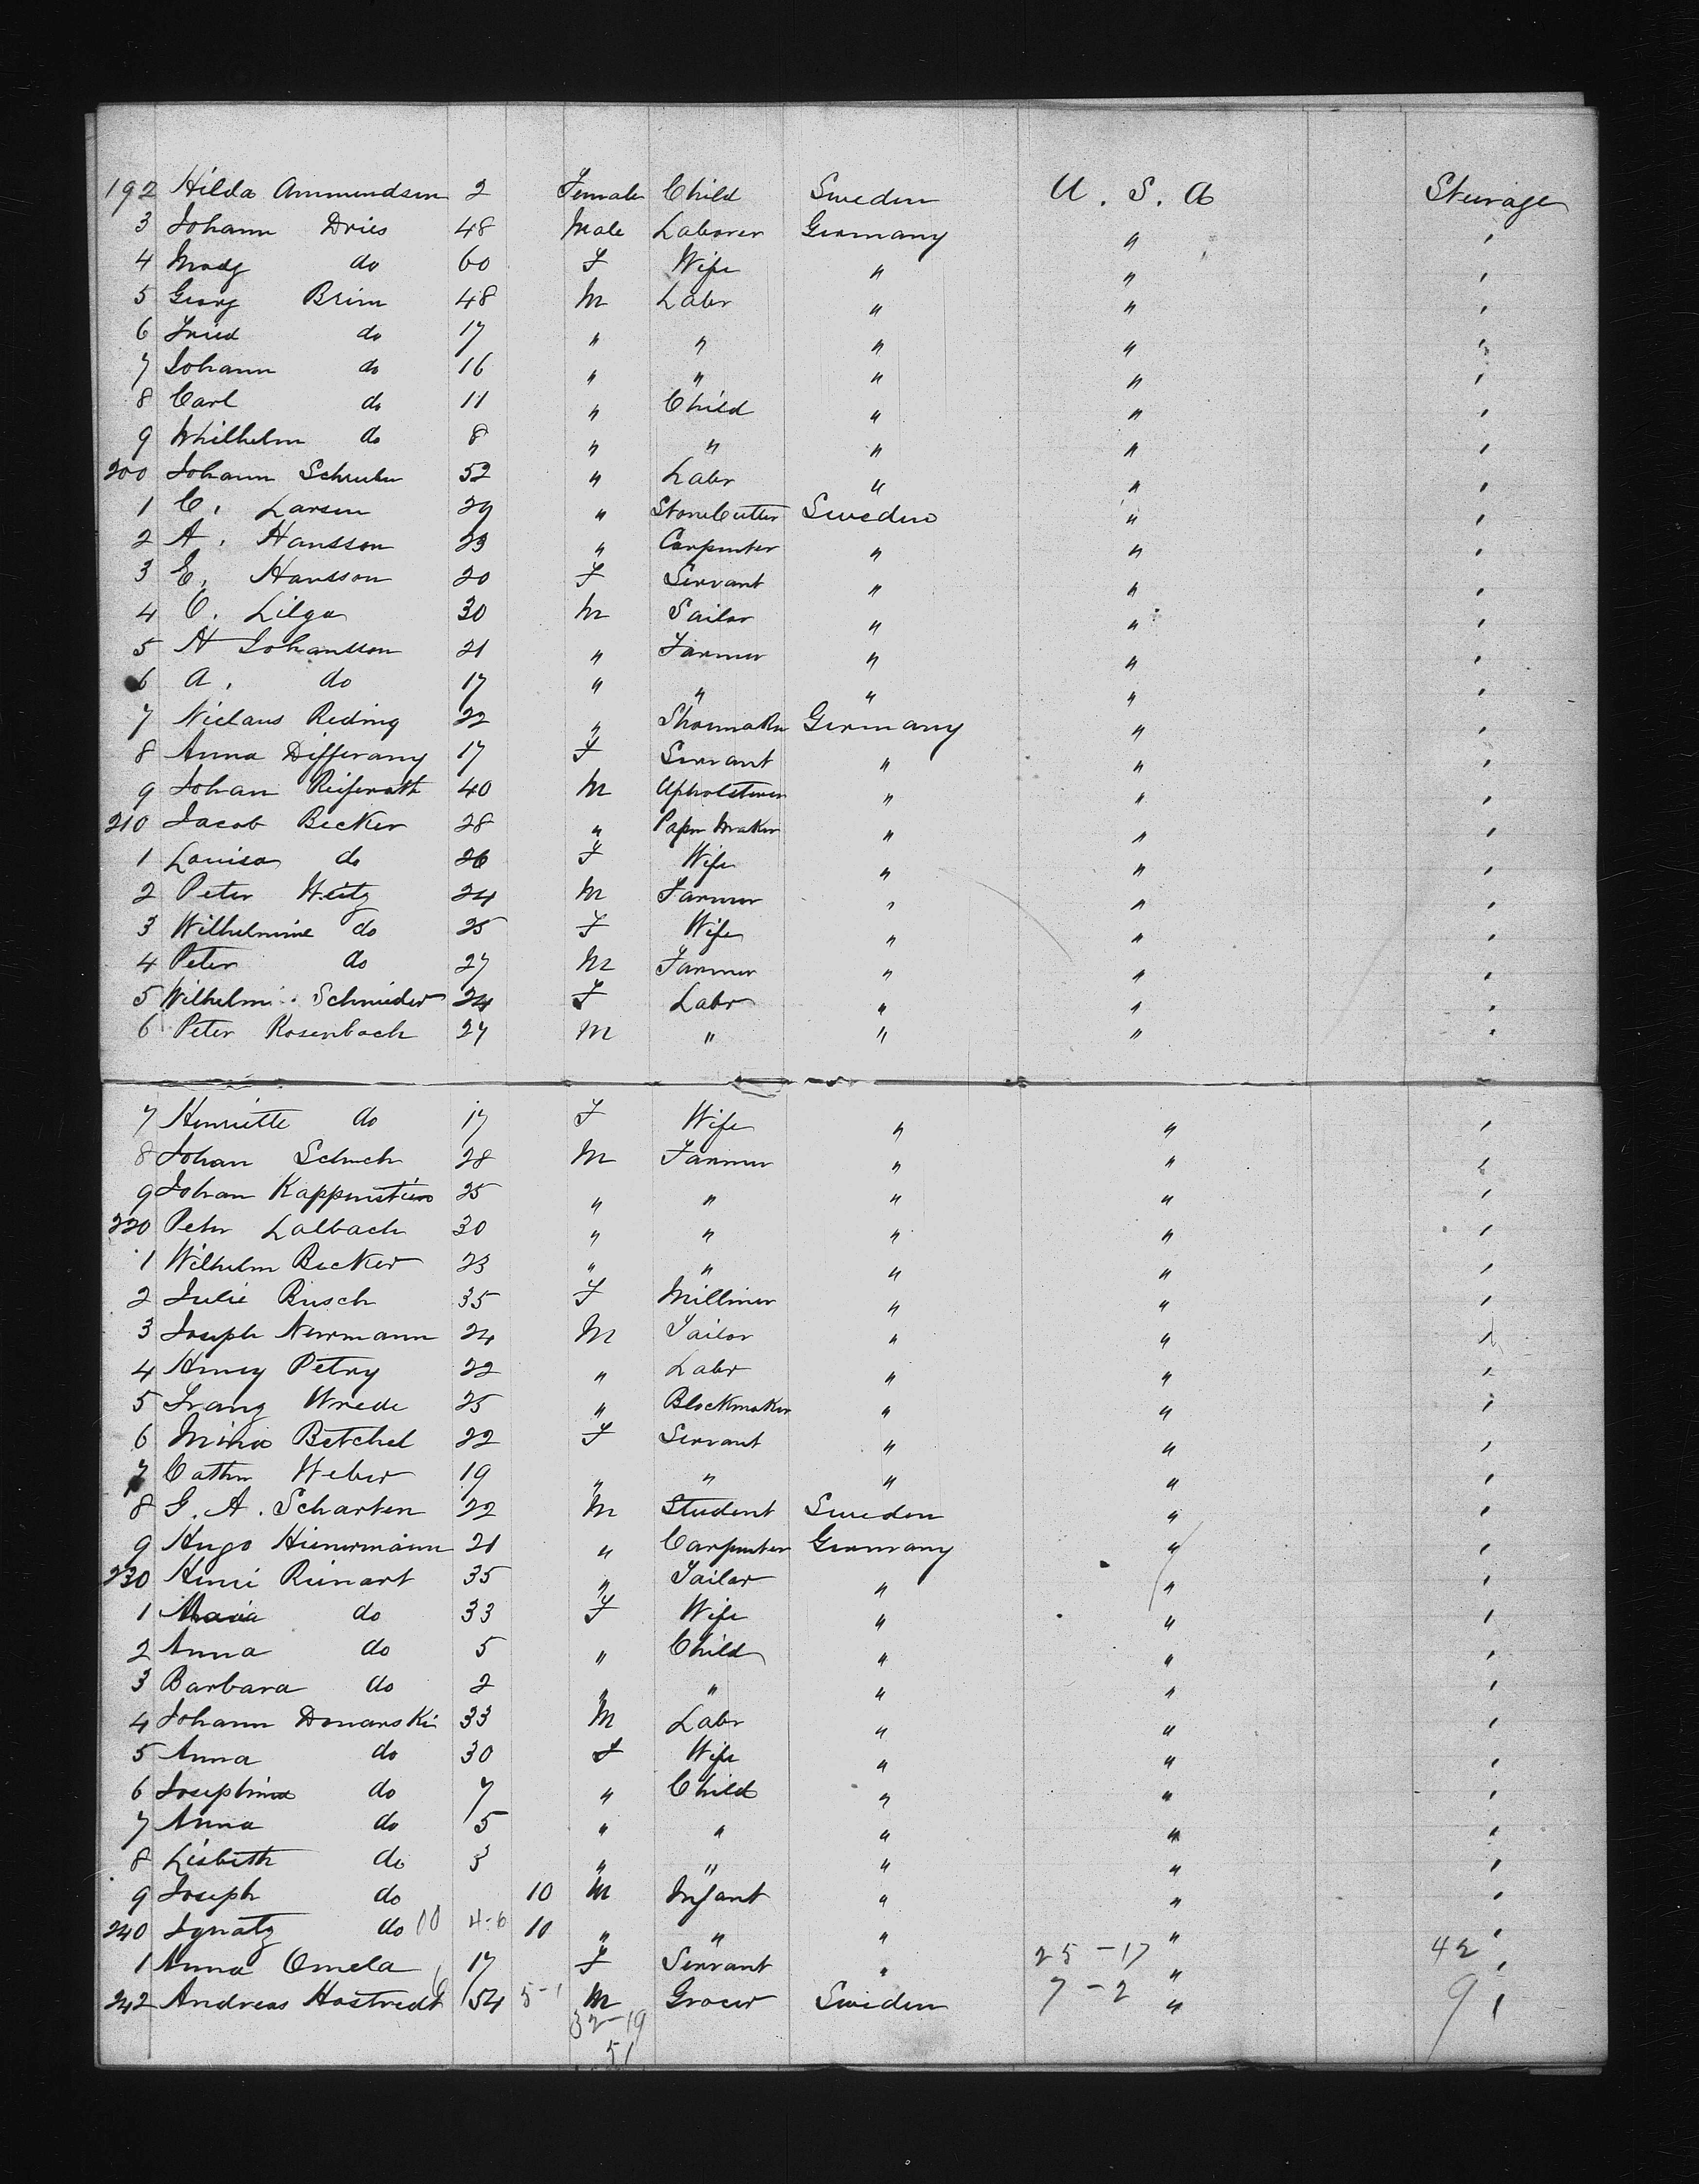 192 Hilda Ammundsen 2 Female Child Sweden U. S. A Steerage
3 Johann Dries 48 Male Laborer Germany " '
4 do 60 F Wife " " '
5 Georg Brim 48 M Labr " " '
6 Fried do 17 " " " " '
7 Johann do 16 " " " " '
8 Carl do 11 " Child " " '
9 Whilhelm do 8 " " " " '
200 Johann Schreiber 52 " Labr " " '
1 C. Larsen 29 " StoneCutter Sweden " '
2 A. Hansson 23 " Carpenter " " '
3 E. Hansson 20 F Servant " " '
4 C. Lilga 30 M Sailor " " '
5 A Johansson 21 " Farmer " " '
6 A. do 17 " " " " '
7 Niclaus Reding 22 " Shoemaker Germany " '
8 Anna Differany 17 F Servant " " '
9 Johan Reiferath 40 M Upholsterer " " '
210 Jacob Becker 28 " Paper Maker " " '
1 Louisa do 26 F Wife " " '
2 Peter Weitz 24 M Farmer " " '
3 Wilhelmine do 25 F Wife " " '
4 Peter do 27 M Farmer " " '
5 Wilhelmi. Schneider 24 F Labr " " '
6 Peter Rosenbach 27 M " " " '
7 Henriette do 17 F Wife " " '
8 Johan Schuch 28 M Farmer " " '
9 Johan Kappenstein 25 " " " " '
220 Peter Lalbach 30 " " " " '
1 Wilhelm Becker 23 " " " " '
2 Julie Busch 35 F Milliner " " '
3 Joseph Newmann 24 M Tailor " " '
4 Henry Petry 22 " Labr " " '
5 Franz Wrede 25 " Blockmaker " " '
6 Mina Betchel 22 F Servant " " '
7 Cathr Weber 19 " " " " '
8 G. A. Scharten 22 M Student Sweden " '
9 Hugo Hienermann 21 " Carpenter Germany " '
230 Henri Reinart 35 " Tailor " " '
1 Maria do 33 F Wife " " '
2 Anna do 5 " Child " " '
3 Barbara do 2 " " " " '
4 Johann Domanski 33 M Labr " " '
5 Anna do 30 F Wife " " '
6 Josephina do 7 " Child " " '
7 Anna do 5 " " " " '
8 Lisbeth do 3 " " " " '
9 Joseph do 10 M Infant " " '
240 Ignatz do 10 4-6 10 " " " " '
1 Anna Omela 17 F Servant " 25-17 " 42 '
242 Andreas Hostredt 54 5-1 M Grocer Sweden 7-2 " 9 '
32-19
51